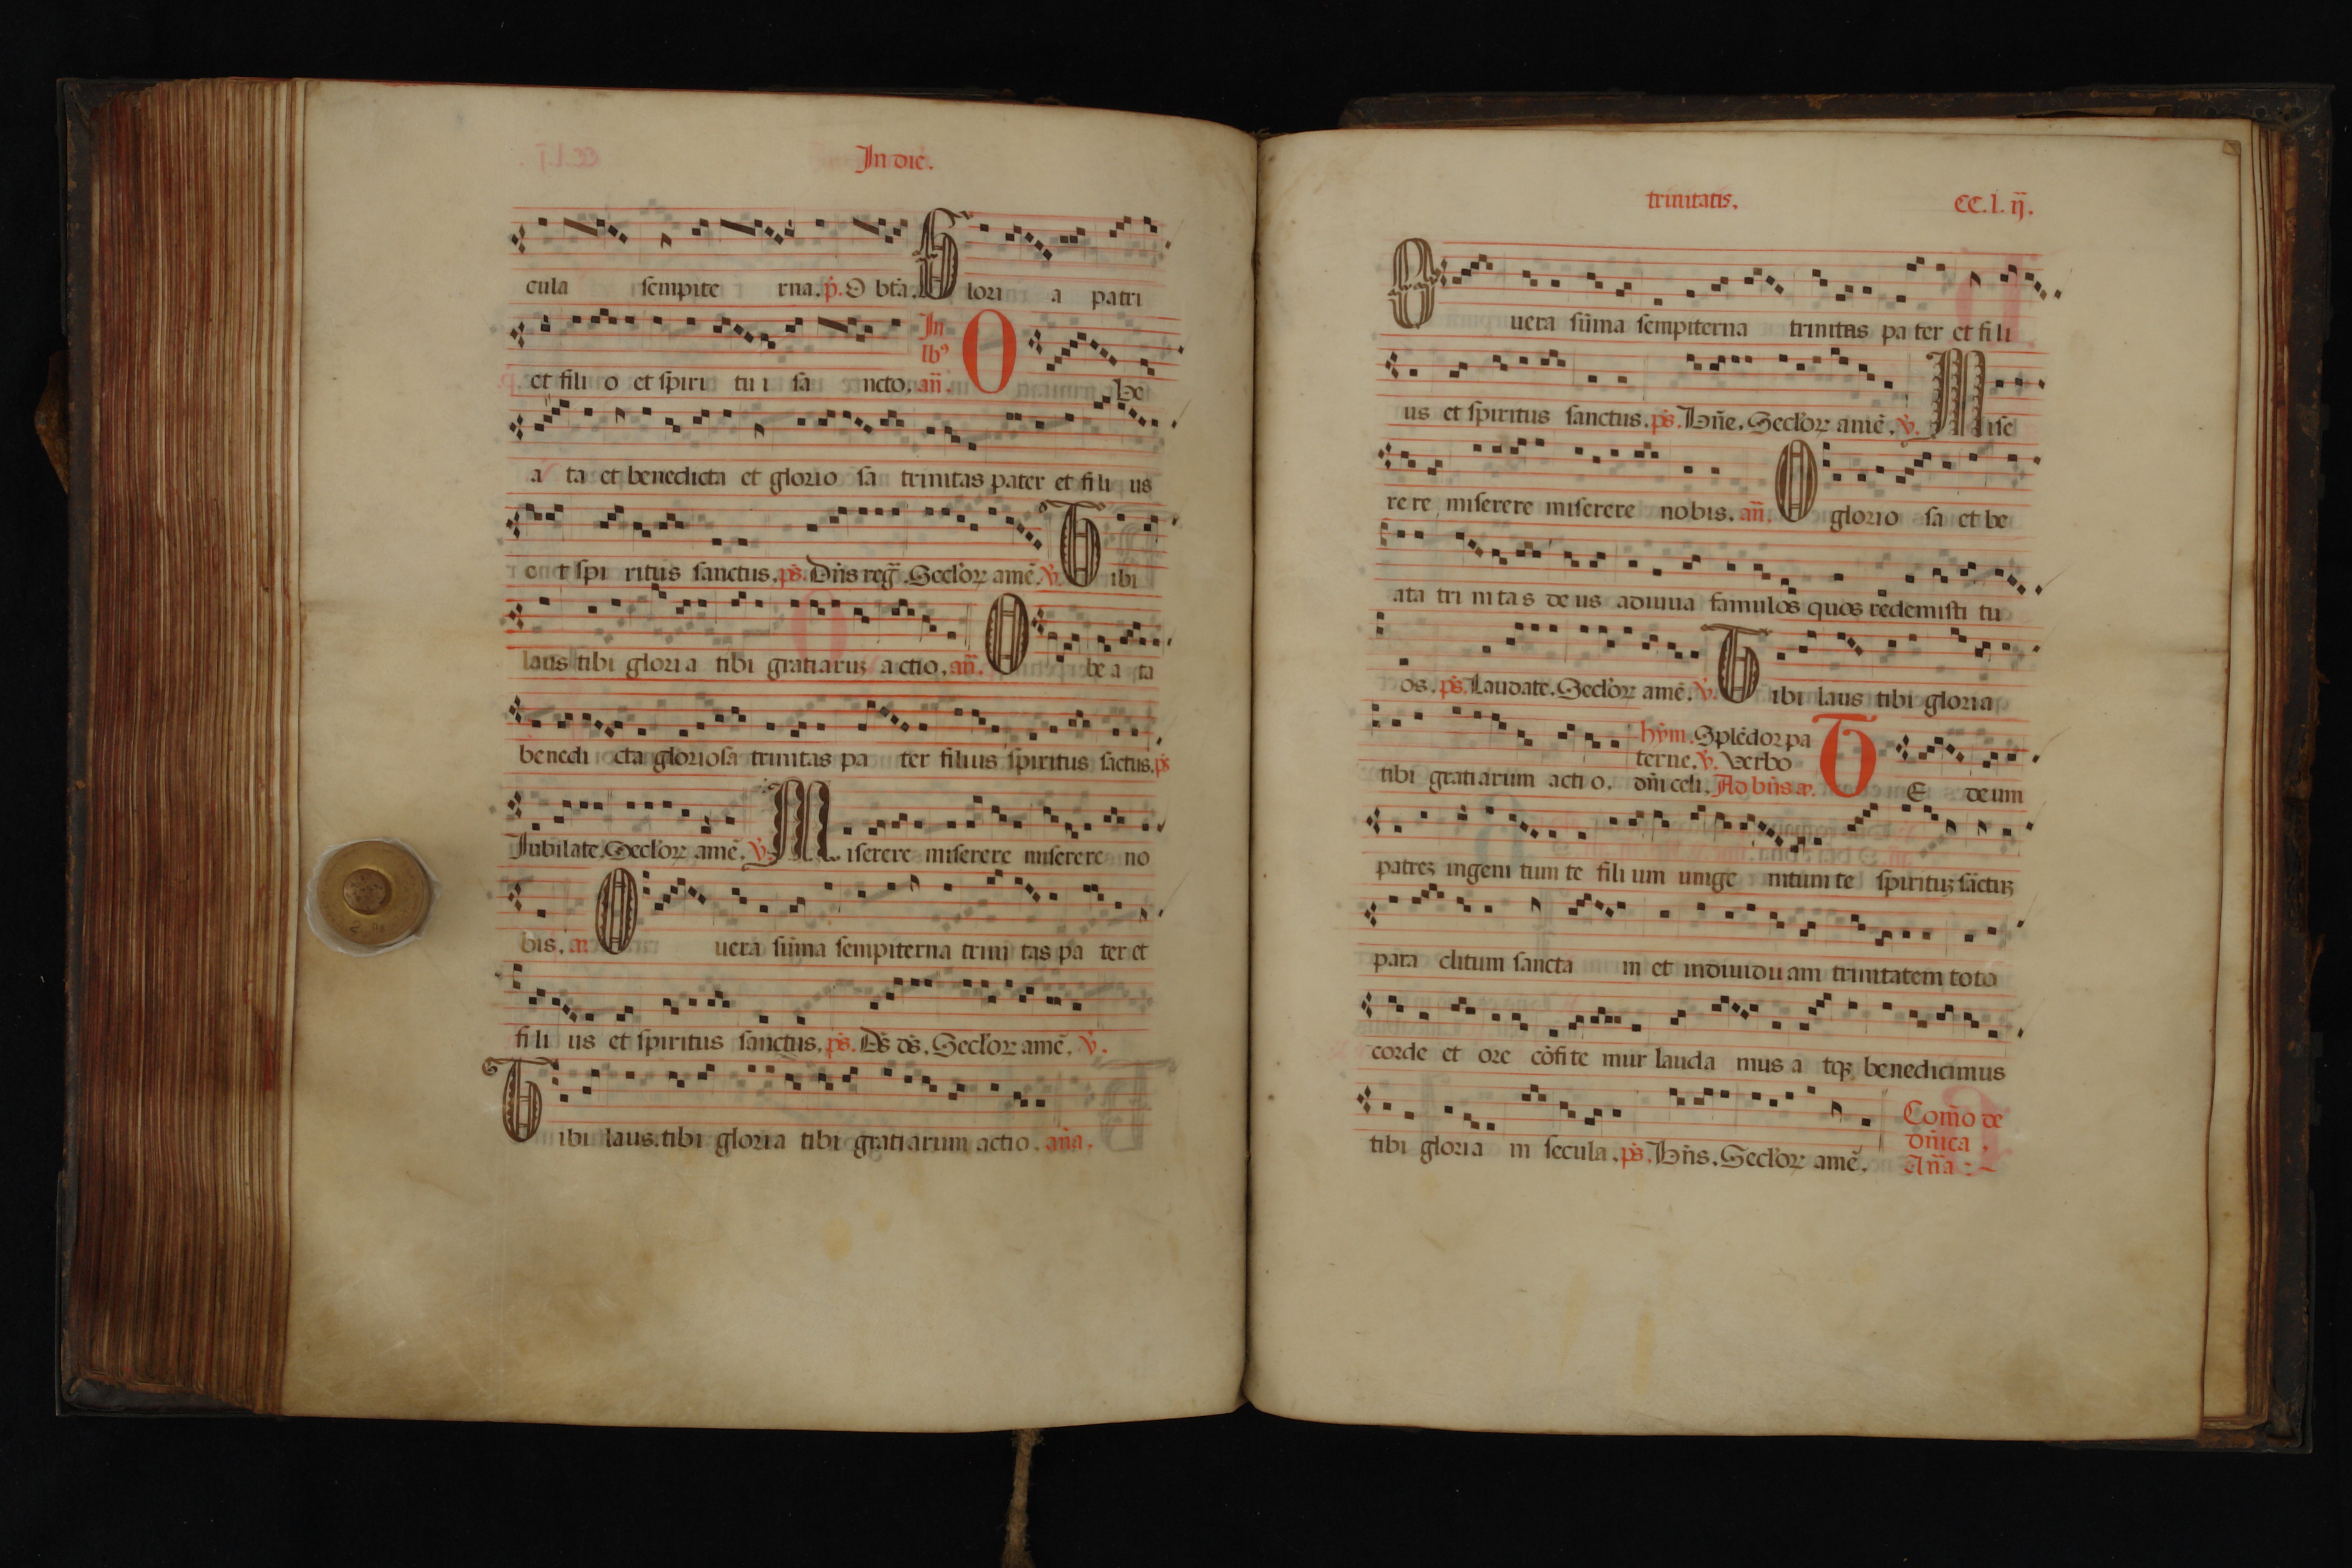 In die.
cula sempite rna. p̃. O bt̃a. Glori a patri
et fili o et spiri tu i sa ncto. añ.
In
lb⁹
O be
a ta et benedicta et glorio sa trinitas pater et fili us
et spi ritus sanctus. ps̃. Dñs reg̃. Secloꝝ amẽ. ℣. Tibi
laus tibi gloria tibi gratiaruꝫ actio. añ. O be a ta
benedi cta gloriosa trinitas pa ter filius spiritus sãctus. ps̃
Iubilate. Secloꝝ amẽ. ℣. Miserere miserere miserere no
bis. an O uera sũma sempiterna trini tas pa ter et
fili us et spiritus sanctus. ps̃. Ds̃ ds̃. Secloꝝ amẽ. ℣.
Tibi laus. tibi gloria tibi gratiarum actio. aña.
trinitatis. CC. l. ij.
O uera sũma sempiterna trinitas pa ter et fili
us et spiritus sanctus. ps̃. Bñe. Secloꝝ amẽ. ℣. Mise
re re miserere miserere nobis. añ. O glorio sa et be
ata tri nitas de us adiuua famulos quos redemisti tu
os. ps̃. Laudate. Secloꝝ amẽ. ℣. Tibi laus tibi gloria
hỹm. Splẽdor pa
terne. ℣. Verbo
tibi gratiarum acti o. dñi celi. Ad bñs a. TE deum
patreꝫ ingeni tum te fili um unige nitum te spirituꝫ sãctuꝫ
para clitum sancta m et indiuidu am trinitatem toto
corde et ore cõfite mur lauda mus a tqꝫ benedicimus
tibi gloria in secula. ps̃. Bñs. Secloꝝ amẽ.
Com̃o de
dñica.
Aña :~